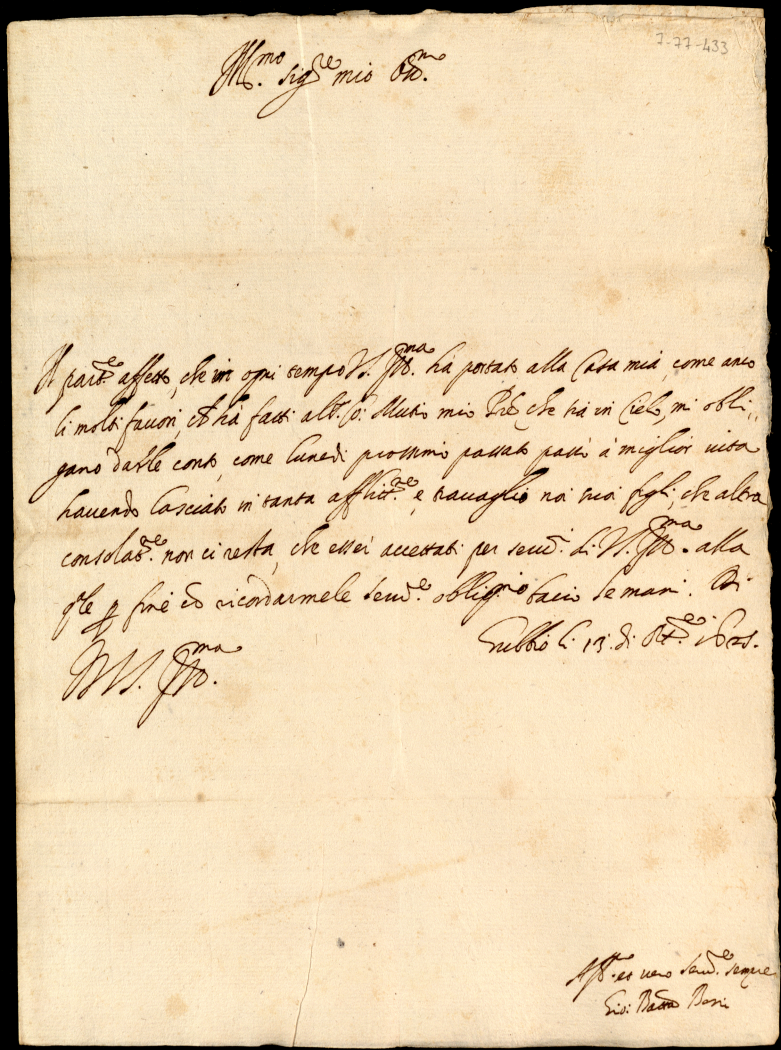 J-77-433
Ill.mo Sig.re mio Oss.mo
Il part.re affetto, che in ogni tempo V.S. Ill.ma hà portato alla Casa mia, come anco
li molti favori, ch hà fatti al S. Mutio mio Pre, che sia in Cielo, mi obli,,
gano darle conto, come lunedì prossimo passato passò à miglior vita
havendo lasciato in tanta afflitt.ne e travaglio noi suoi figli, che altra
consolat.ne non ci resta, che esser accettati per serv.i di V.S. Ill.ma alla
qle p fine cò ricordarmele Serv.re oblig.mo bacio le mani. Di
Gubbio li 13. di Ott.re 1625.
D V.S. Ill.ma
Aff. et vero Serv.re sempre
Gio: Batta